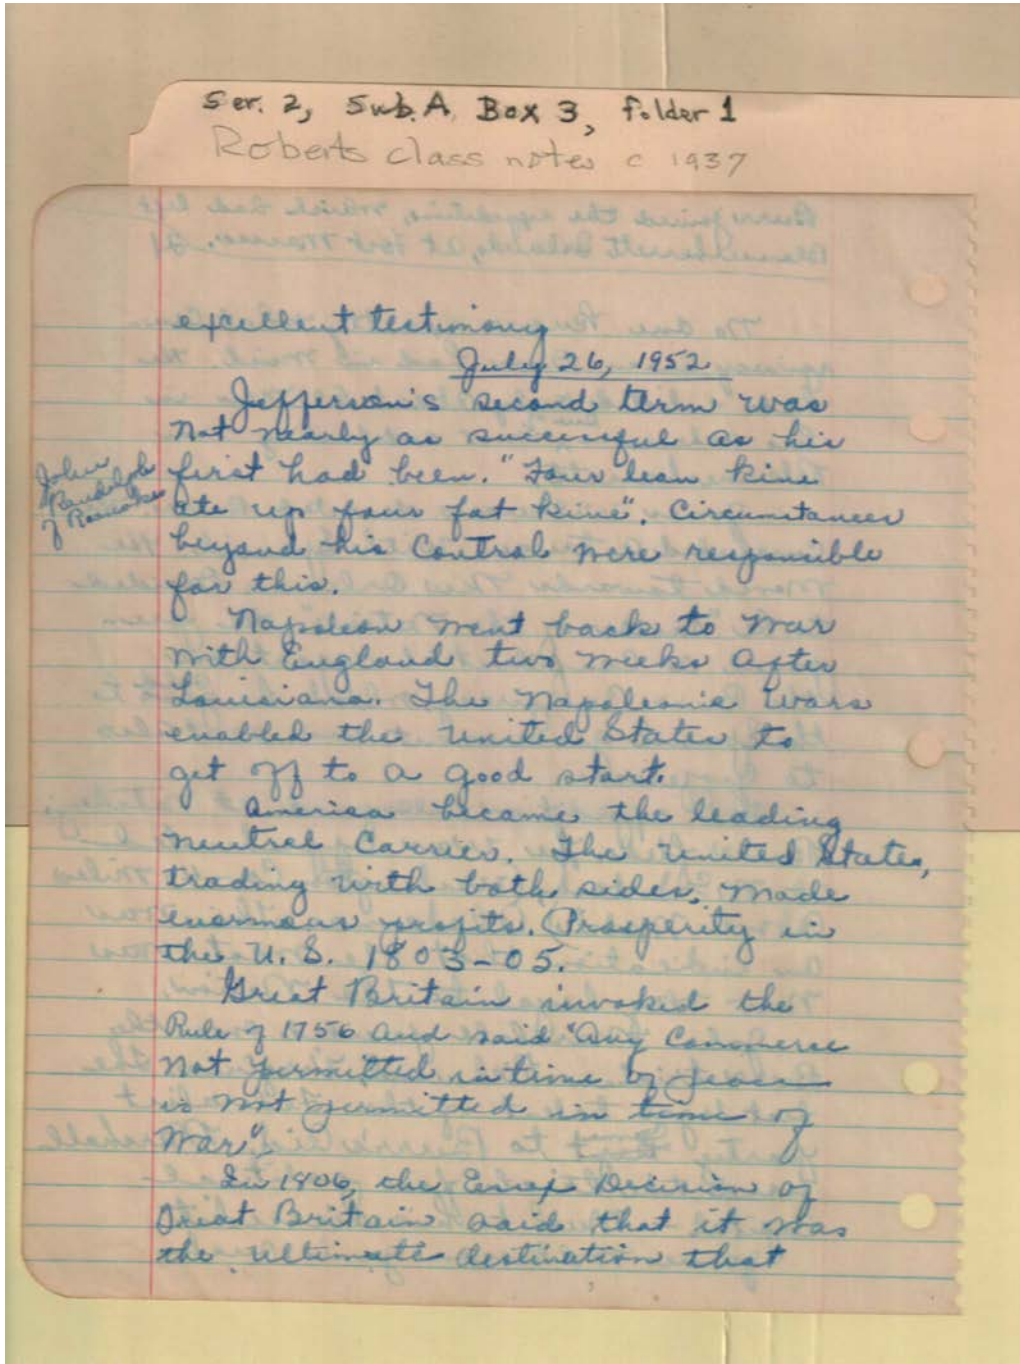 Ser. 2, Sub. A Box 3, folder 1
Roberts class notes c 1937
excellent testimony
July 26, 1952
Jefferson's second term was
not nearly as successful as his
John
Randolph
of Roanoke
first had been. "Four lean kine
ate up four fat kine". Circumstances
beyond his control were responsible
for this.
Napoleon went back to war
with England two weeks after
Louisiana. The Napoleonic Wars
enabled the United States to
get off to a good start.
America became the leading
neutral carrier. The United States,
trading with both sides, made
enormous profits. Prosperity in
the U. S. 1803-05.
Great Britain invoked the
Rule of 1756 and said "Any Commerce
not permitted in time of peace
is not permitted in time of
War".
In 1806, the Essex Decision of
Great Britain said that it was
the ultimate destination that